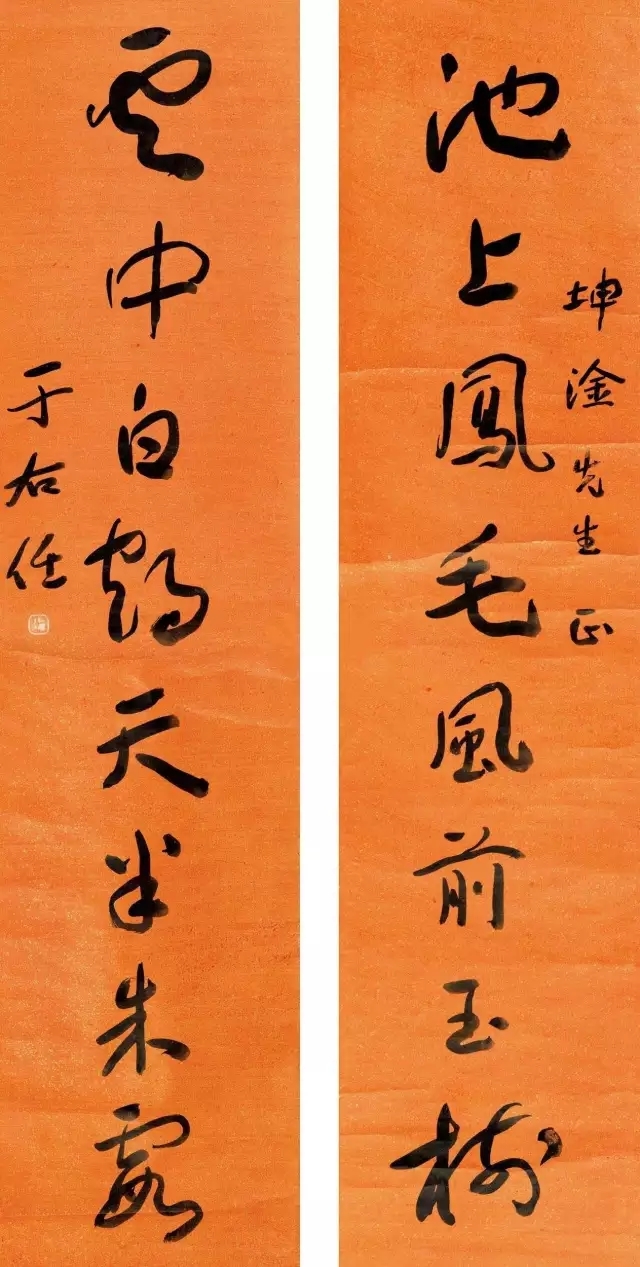 池上鳳毛風前玉樹
坤淦先生正
雲中白鶴天半朱霞
于右任